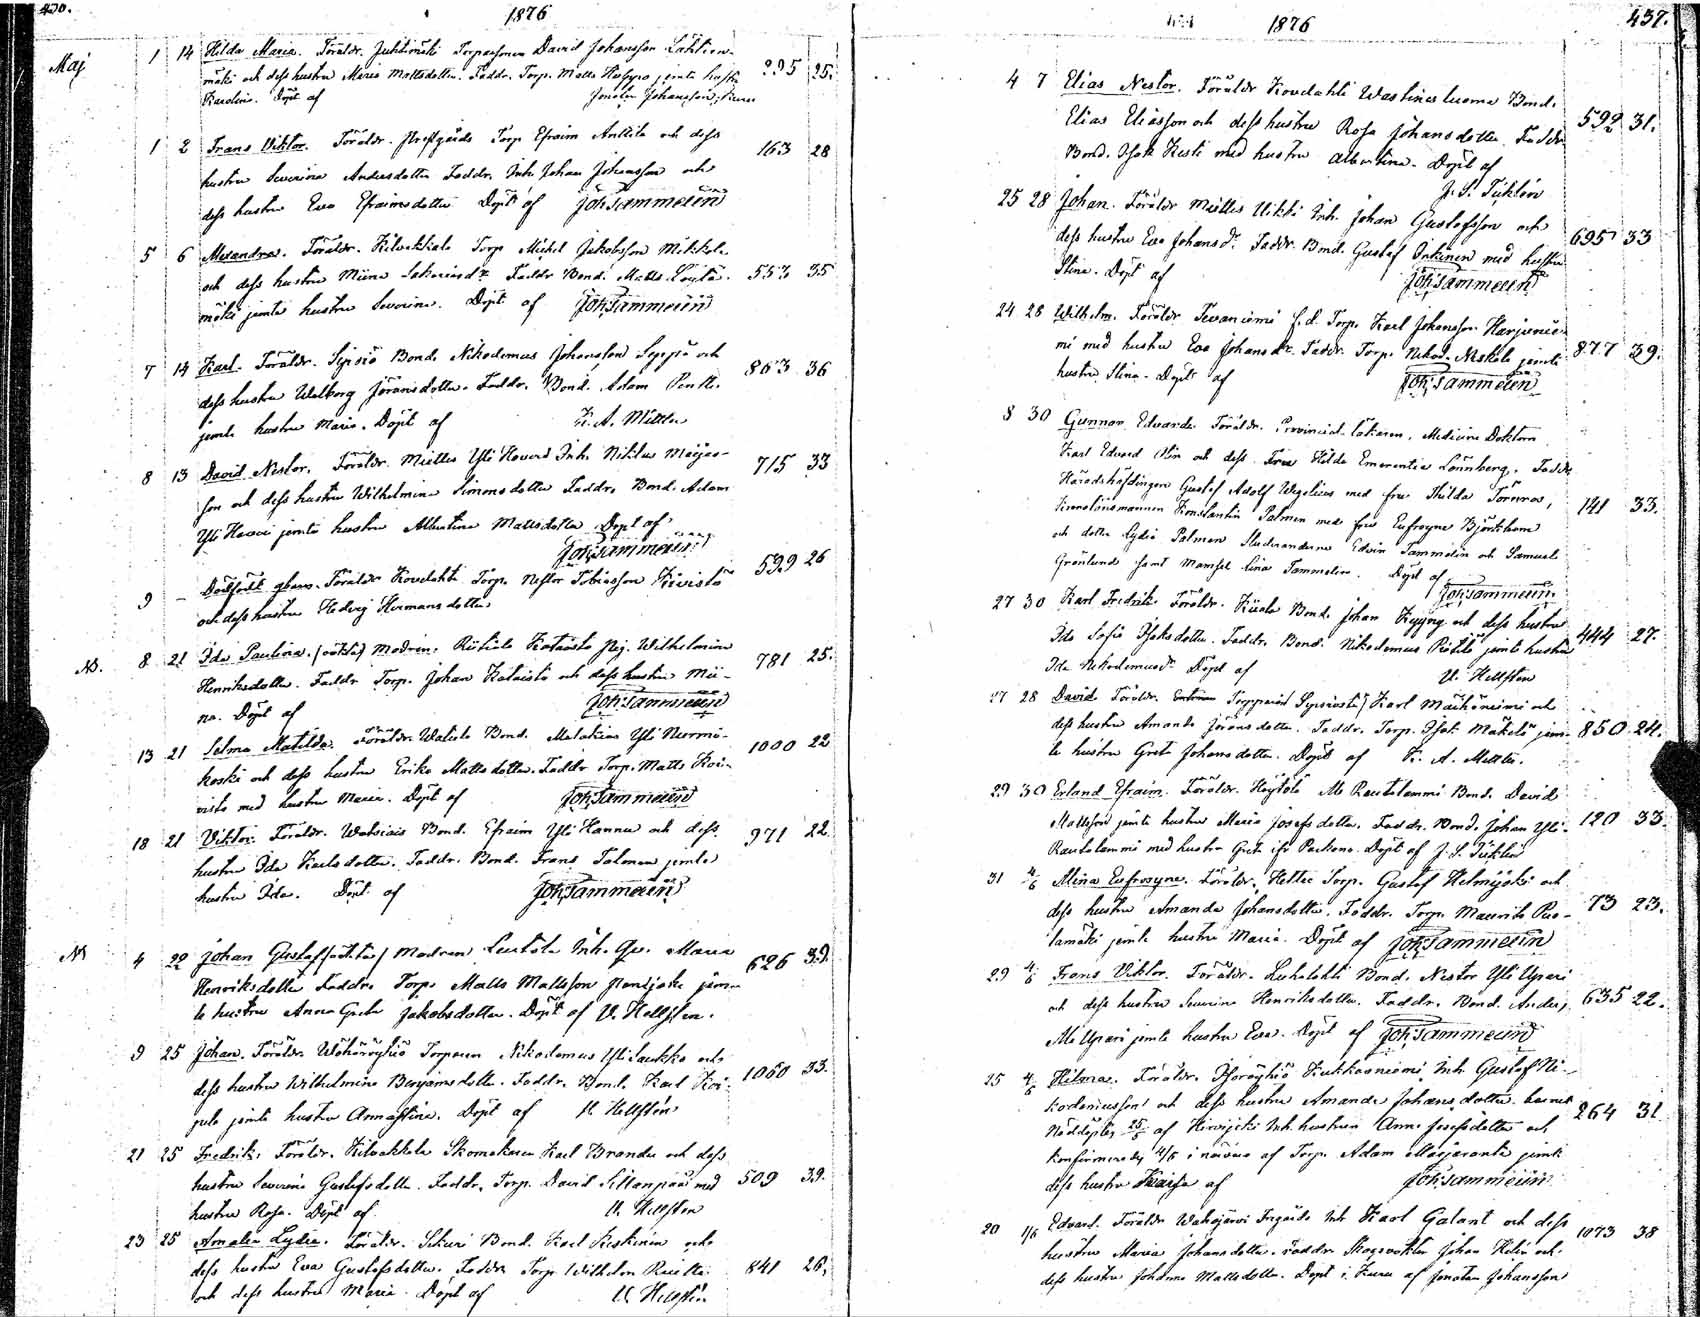 430.
1876
Maj
1 14 Hilda Maria. Föräldr. Juhtimäki Torparesonen David Johansson Lähteen-
mäki och dess hustru Maria Mattsdotter. Faddr. Torp. Matts jemte hustru 295 25.
Karolina. Döpt af Jonatan Johansson, Kuru
1 2 Frans Viktor. Föräldr. Prestgårds Torp. Efraim Anttila och dess 163 28
hustru Severina Andersdotter Faddr. Inh. Johan Johansson och
dess hustru Eva Efraimsdotter Döpt af Joh. Tammelin
5 6 Alexandra. Föräldr. Kilvakkala Torp. Mickel Jakobsson Mikkola
och dess hustru Miina Sakariasdr. Faddr. Bond. Matts 553 35
mäki jemte hustru Severina. Döpt af Joh. Tammelin
7 14 Karl. Föräldr. Sipsiö Bond. Nikodemus Johansson Seppä och 863 36
dess hustru Walborg Jöransdotter. Faddr. Bond. Adam Penti.
jemte hustru Maria. Döpt af K. A. Mittler
8 13 David Nestor. Föräldr. Miettis Yli Houvi Inh. Niklas Maijas- 715 33
son och dess hustru Wilhelmina Simonsdotter Faddr. Bond. Adam
Yli Houvi jemte hustru Albertina Mattsdotter Döpt af
Joh. Tammelin
9 - Dödfödt Föräldr. Kovelahti Torp. Nestor Tobiasson Kivistö 599 26
och dess hustru Hedvig Hermansdotter
NB. 8 21 Ida Paulina. (oäkta) Modren. Riitiala Kataisto Pig. Wilhelmina 781 25.
Henriksdotter. Faddr. Torp. Johan Kataisto och dess hustru Mii-
na. Döpt af Joh. Tammelin
13 21 Selma Matilda. Föräldr. Watula Bond. Malakias Yli Nurmi- 1000 22
koski och dess hustru Erika Mattsdotter. Faddr. Torp. Matts Koi-
visto med hustru Maria. Döpt af Joh. Tammelin
18 21 Viktor. Föräldr. Watsiais Bond. Efraim Yli Hannu och dess 971 22.
hustru Ida Karlsdotter. Faddr. Bond. Frans Talonen jemte
hustru Ida. Döpt af Joh. Tammelin
NB 4 22 Johan Gustaf (oäkta) Modren Luhtola Inh. Qv. Maria 626 39.
Henriksdotter Faddr. Torp. Matts Mattsson jem-
te hustru Anna Greta Jakobsdotter. Döpt af V. Hellsten.
9 25 Johan. Föräldr. Wähäröyhiö Torparen Nikodemus Yli Saukko och
dess hustru Wilhelmina Benjamsdotter. Faddr. Bond. Karl Koi- 1060 33.
pila jemte hustru Annastina. Döpt af V. Hellsten
21 25 Fredrik. Föräldr. Kilvakkala Skomakaren Karl Brander och dess
hustru Severina Gustafsdotter. Faddr. Torp. David Siltanpää med 509 39.
hustru Rosa. Döpt af V. Hellsten
23 25 Amalia Lydia. Föräldr. Sikuri Bond. Karl Keskinen och
dess hustru Eva Gustafsdotter. Faddr. Torp. Wilhelm 841 26,
och dess hustru Maria. Döpt af V. Hellsten
437.
1876
4 7 Elias Nestor. Föräldr. Kovelahti Wastinesluoma Bond.
Elias Eliasson och dess hustru Rosa Johansdotter Faddr. 592 31.
Bond. Isak Kesti med hustru Albertina. Döpt af
J. S. Tuklin
25 28 Johan. Föräldr. Miettis Uikki Inh. Johan Gustafsson och
dess hustru Eva Johansdr. Faddr. Bond. Gustaf Onkinen med hustru 695 33
Stina. Döpt af Joh. Tammelin
24 28 Wilhelm. Föräldr. Tevaniemi f.d. Torp. Karl Johansson Harjunie-
mi med hustru Eva Johansdr. Faddr. Torp. Nikod. Niskala jemte 877 39.
hustru Stina. Döpt af Joh. Tammelin
8 30 Gunnar Edvard. Föräldr. Provincial-läkaren, Medicine Doktorn
Karl Edvard Olin och dess Fru Hilda Emerentia Lönnberg. Faddr.
Häradshöfdingen Gustaf Adolf Wegelius med fru Hilda Törnroos, 141 33.
Kronolänsmannen Konstantin Palmen med fru Eufrosyne Björkbom
och dotter Lydia Palmen Studeranderne Edvin Tammelin och Samuel
Grönlund samt Mamsel Lina Tammelin. Döpt af
Joh. Tammelin.
27 30 Karl Fredrik. Föräldr. Kiiala Bond. Johan Kyyny och dess hustru
Ida Sofia Isaksdotter. Faddr. Bond. Nikodemus jemte hustru 444 27.
Ida Nikodemusdr. Döpt af V. Hellsten
27 28 David Föräldr. Sepperiö Karl Märkäniemi och
dess hustru Amanda Jöransdotter. Faddr. Torp. Isak Mäkelä jem- 850 24.
te hustru Greta Johansdotter. Döpt af K. A. Mittler.
29 30 Erland Efraim. Föräldr. Höytölä Ala Rautalammi Bond. David
Mattsson jemte hustru Maria Josefsdotter. Faddr. Bond. Johan Yli- 120 33.
Rautalammi med hustru Greta ifr Parkano. Döpt af J. S. Tuklin
31 4/6 Miina Eufrosyne. Föräldr. Hettee Torp. Gustaf Helmijoki och
dess hustru Amanda Johansdotter. Faddr. Torp. Maurits Puo- 73 23.
lamäki jemte hustru Maria. Döpt af Joh. Tammelin
29 4/6 Frans Viktor. Föräldr. Luhalahti Bond. Nestor Yli Upari
och dess hustru Severina Henriksdotter. Faddr. Bond. Anders 635 22.
Ala Upari jemte hustru Eva. Döpt af Joh. Tammelin
25 4/6 Hilma. Föräldr. Isoröyhiö Kukkoniemi Inh. Gustaf Ni-
kodemusson och dess hustru Amanda Johansdotter. barnet 264 31
Nöddöptes 25/5 af Hirvijoki Inh. hustrun Anna Josefsdotter och
konfirmerades 4/6 i närvaro af Torp. Adam Maijaranta jemte
dess hustru Kaisa af Joh. Tammelin
20 1/6 Edvard. Föräldr. Wahojärvi Inh. Karl Galant och dess 1073 38
hustru Maria Johansdotter. Faddr. Skogvaktar Johan Helin och
dess hustru Johanna Mattsdotter. Döpt i Kuru af Jonatan Johansson